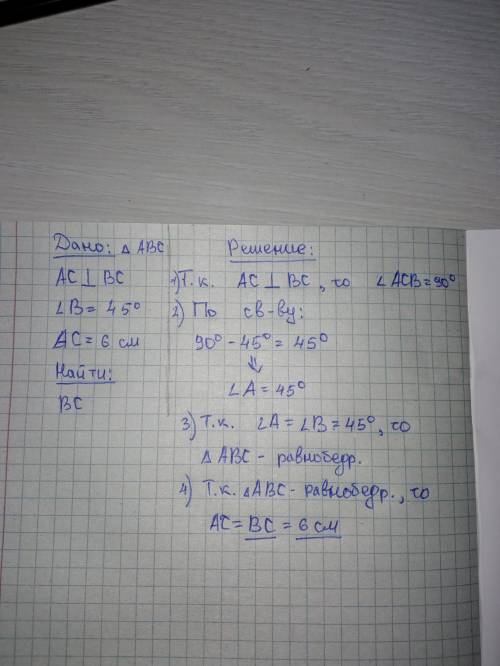 Дано: △ ABC
AC ⊥ BC
∠B = 45°
AC = 6 см
Найти:
BC
Решение:
1) Т.к. AC ⊥ BC, то ∠ACB = 90°
2) По св-ву:
90° - 45° = 45°
⇓
∠A = 45°
3) Т.к. ∠A = ∠B = 45°, то
△ ABC - равнобедр.
4) Т.к. △ABC - равнобедр., то
AC = BC = 6 см